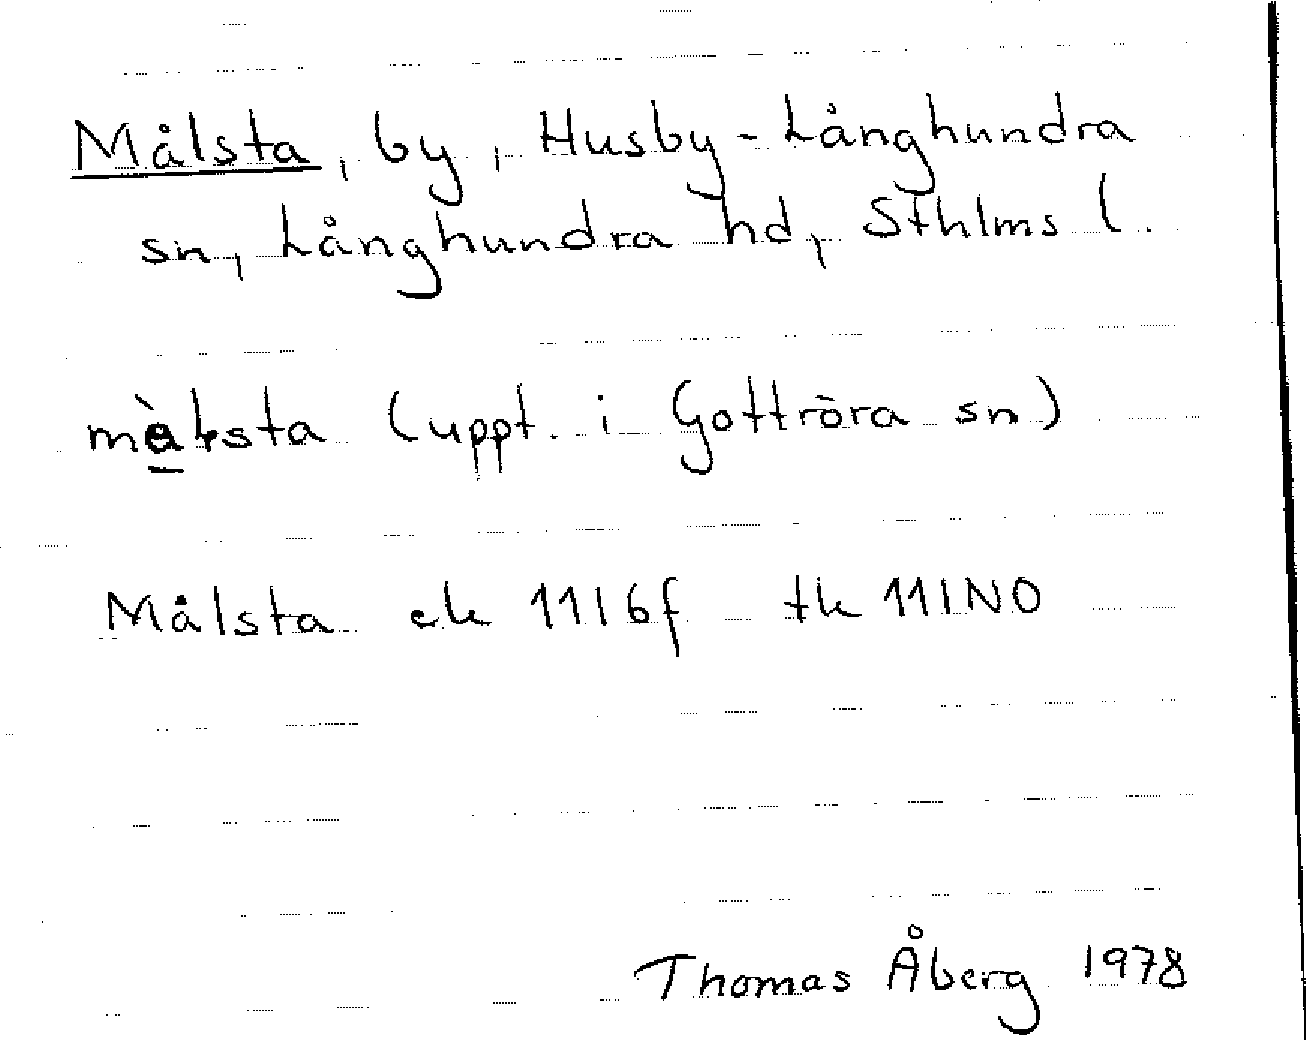 Målsta, by, Husby-Långhundra
sn, Långhundra hd, Sthlms l.
mạ̀lsta (uppt. i Gottröra sn)
Målsta ek 11I6f tk 11INO
Thomas Åberg 1978